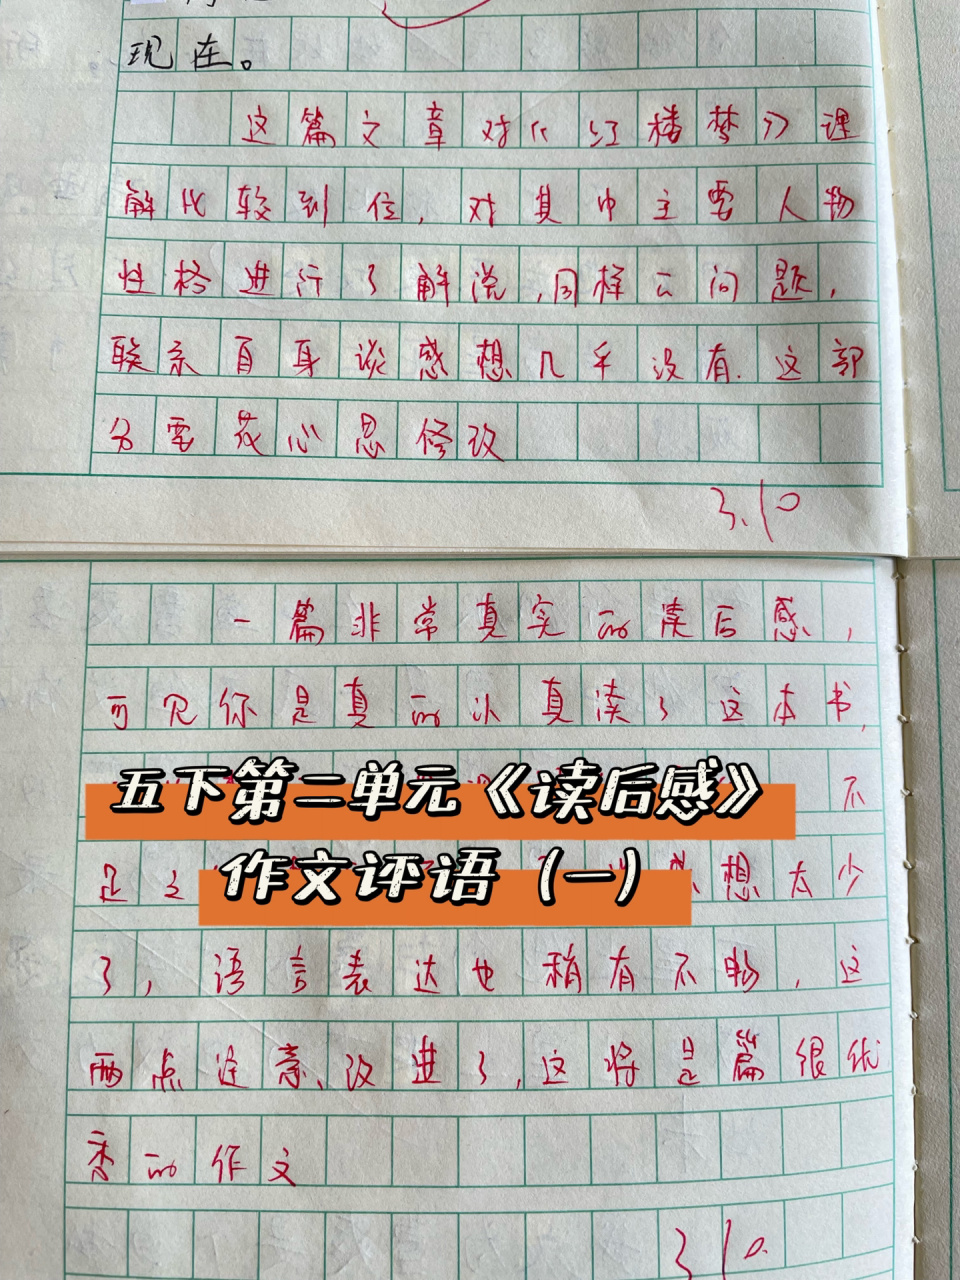 现在。
这篇文章对《红楼梦》理
解比较到位，对其中主要人物
性格进行了解说，同样云问题，
联系自身谈感想几乎没有.这部
分要花心思修改
3.10
一篇非常真实的读后感，
可见你是真的认真读了这本书，
五下第二单元《读后感》
不
作文评语（一）
足之 想太少
了，语言表达也稍有不畅，这
两点注意、改进了，这将是篇很优
秀的作文
3.10.